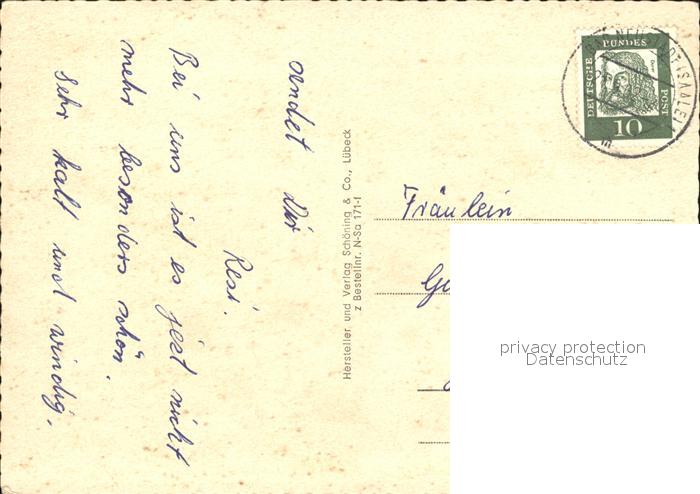 sendet Dir
Resi.
Bei uns ist es jetzt nicht
mehr besonders schön.
Sehr kalt und windig.
Hersteller und Verlag Schöning & Co., Lübeck
z Bestellnr. N-Sa 171-f
DEUTSCHE
BUNDES
POST
10
(SAALE)
Fräulein
privacy protection
Datenschutz